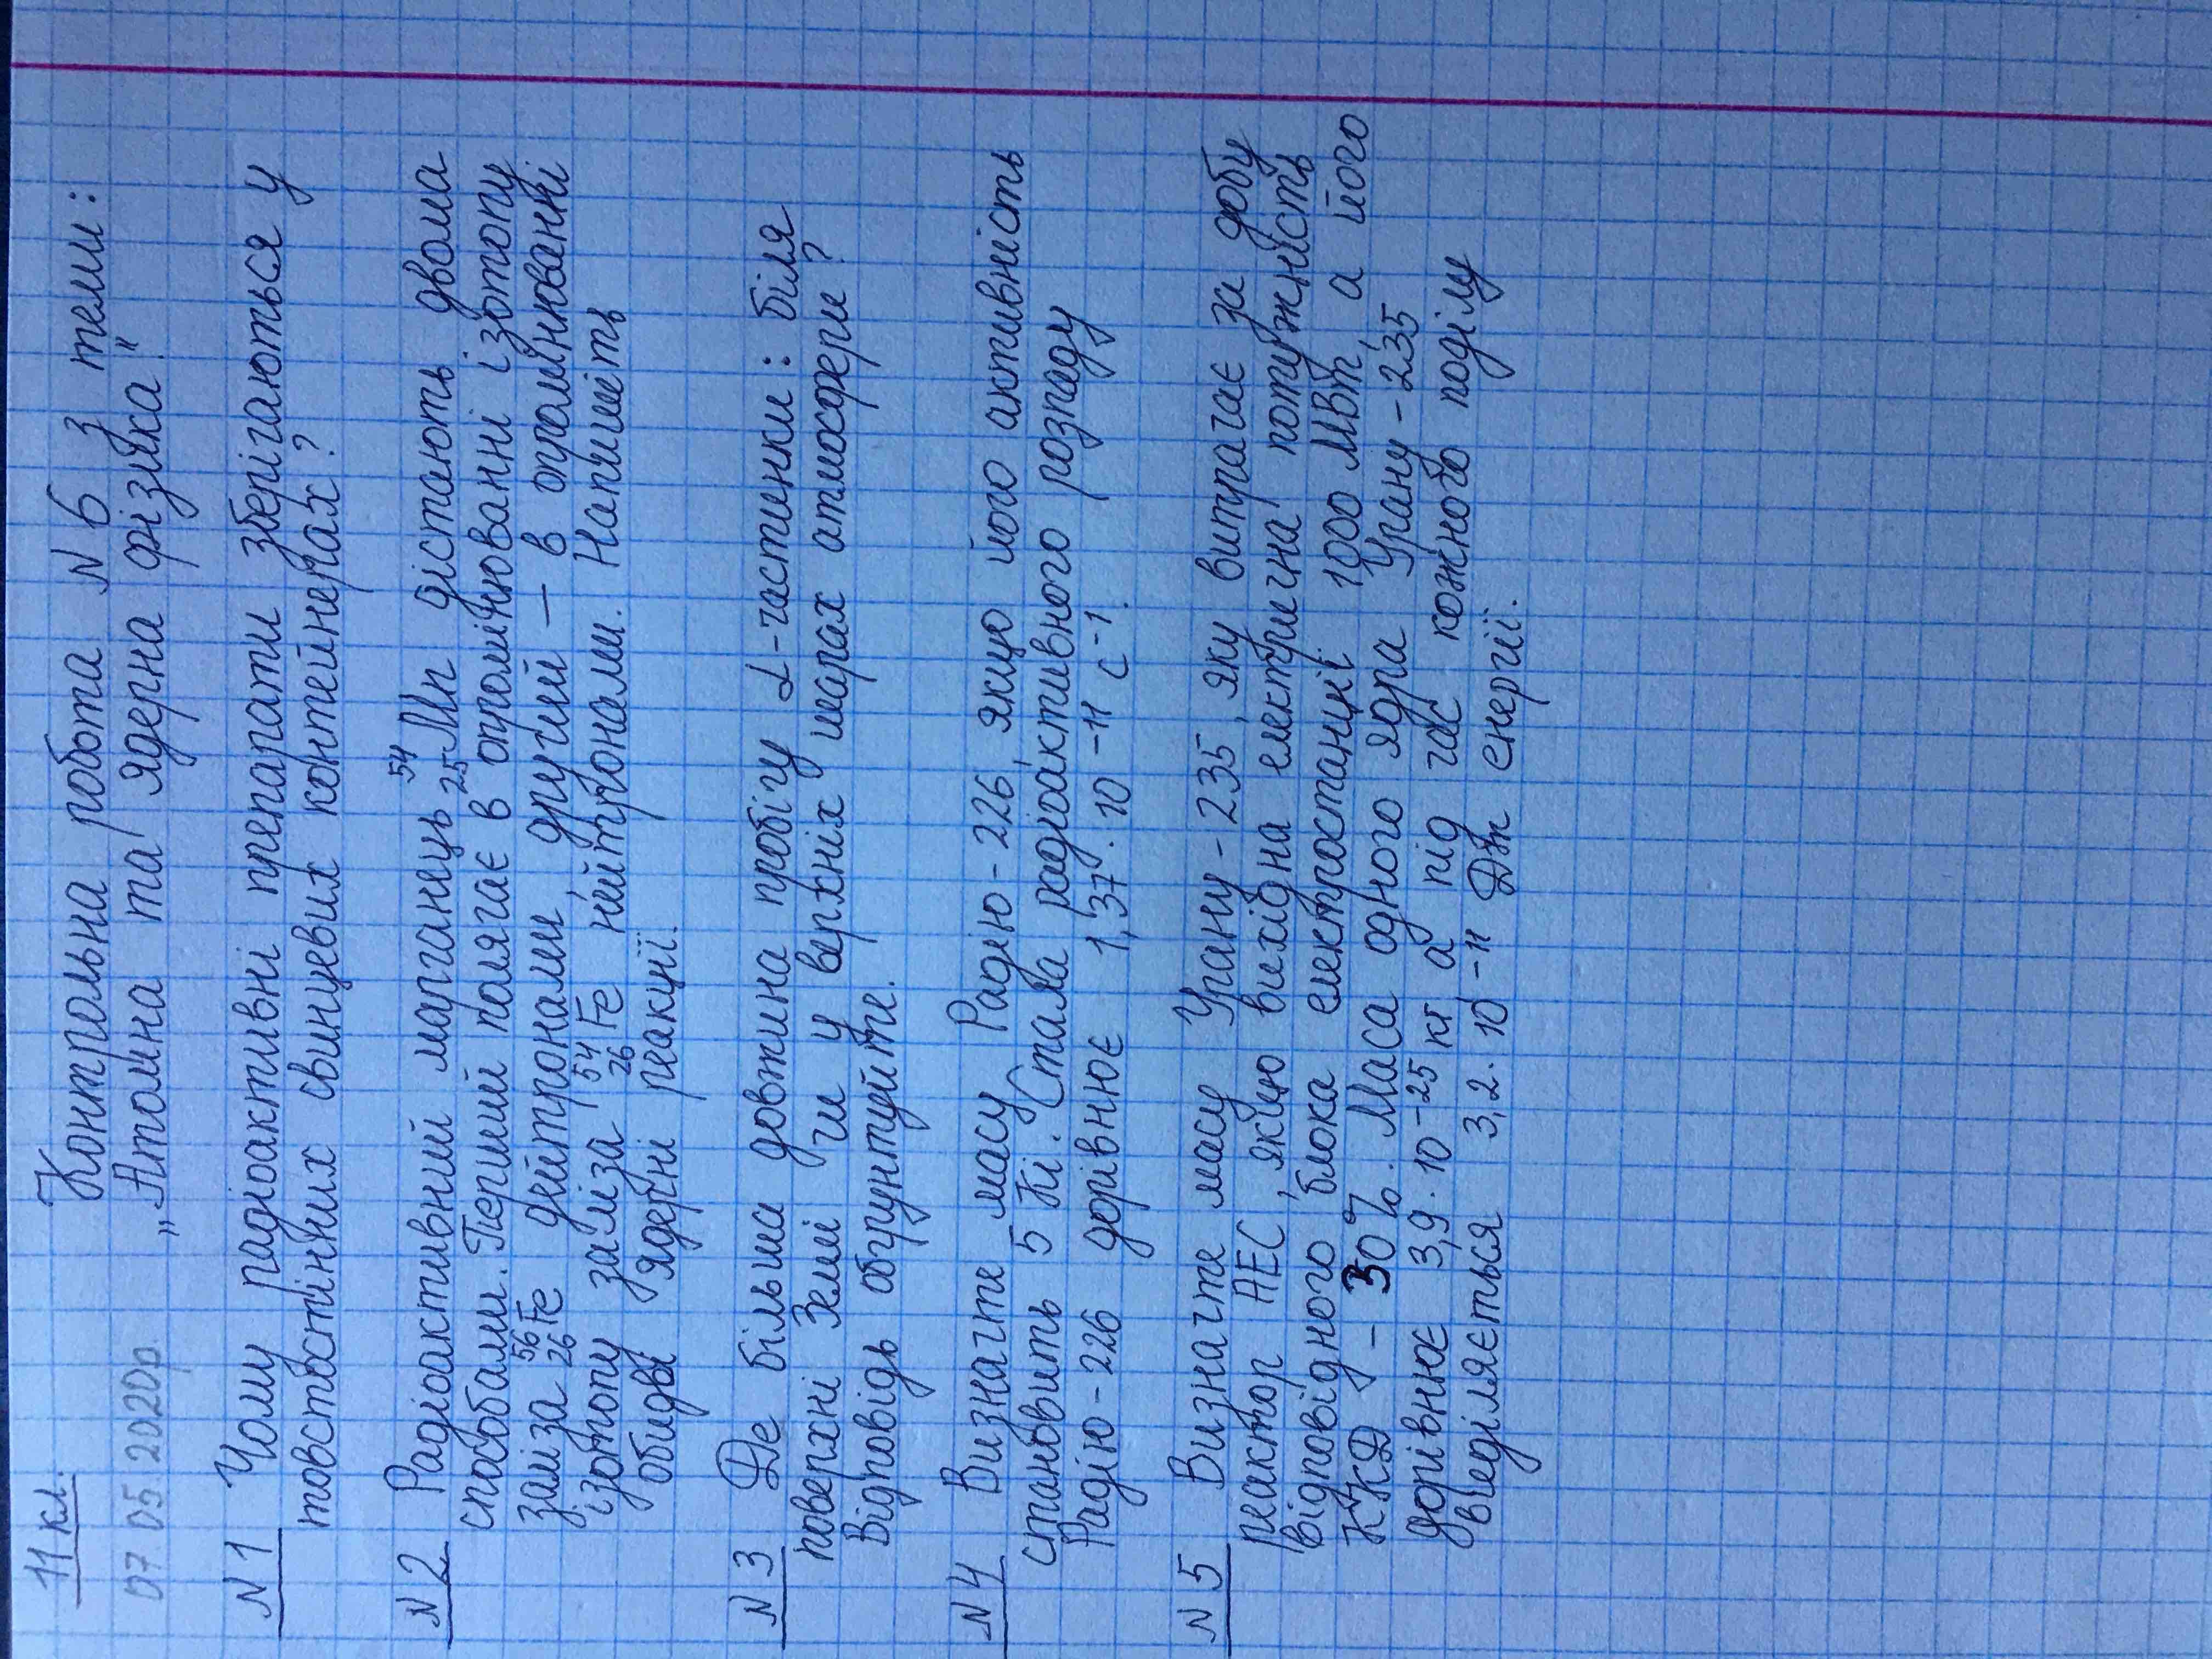 11 кл.
07 05 2020р.
Контрольна робота N 6 з теми:
„Атомна та ядерна фізика."
N 1 Чому радіоактивні препарати зберігаються у
товстостінних свинцевих контейнерах?
N 2 Радіоактивний марганець ⁵⁴₂₅Mn дістають двома
способами. Перший полягає в опромінюванні ізотопу
заліза ⁵⁶₂₆Fe дейтронами, другий – в опромінюванні
ізотопу заліза ⁵⁴₂₆Fe нейтронами. Напишіть
обидві ядерні реакції.
N 3 Де більша довжина пробігу α-частинки: біля
поверхні Землі чи у верхніх шарах атмосфери?
Відповідь обґрунтуйте.
N 4 Визначте масу Радію-226, якщо його активність
становить 5 Кі. Стала радіоактивного розпаду
Радію-226 дорівнює 1,37·10⁻¹¹ с⁻¹.
N 5 Визначте масу Урану-235, яку витрачає за добу
реактор АЕС, якщо вихідна електрична потужність
відповідного блока електростанції 1000 МВт, а його
ККД – 30%. Маса одного ядра Урану-235
дорівнює 3,9·10⁻²⁵ кг а під час кожного поділу
виділяється 3,2·10⁻¹¹ Дж енергії.